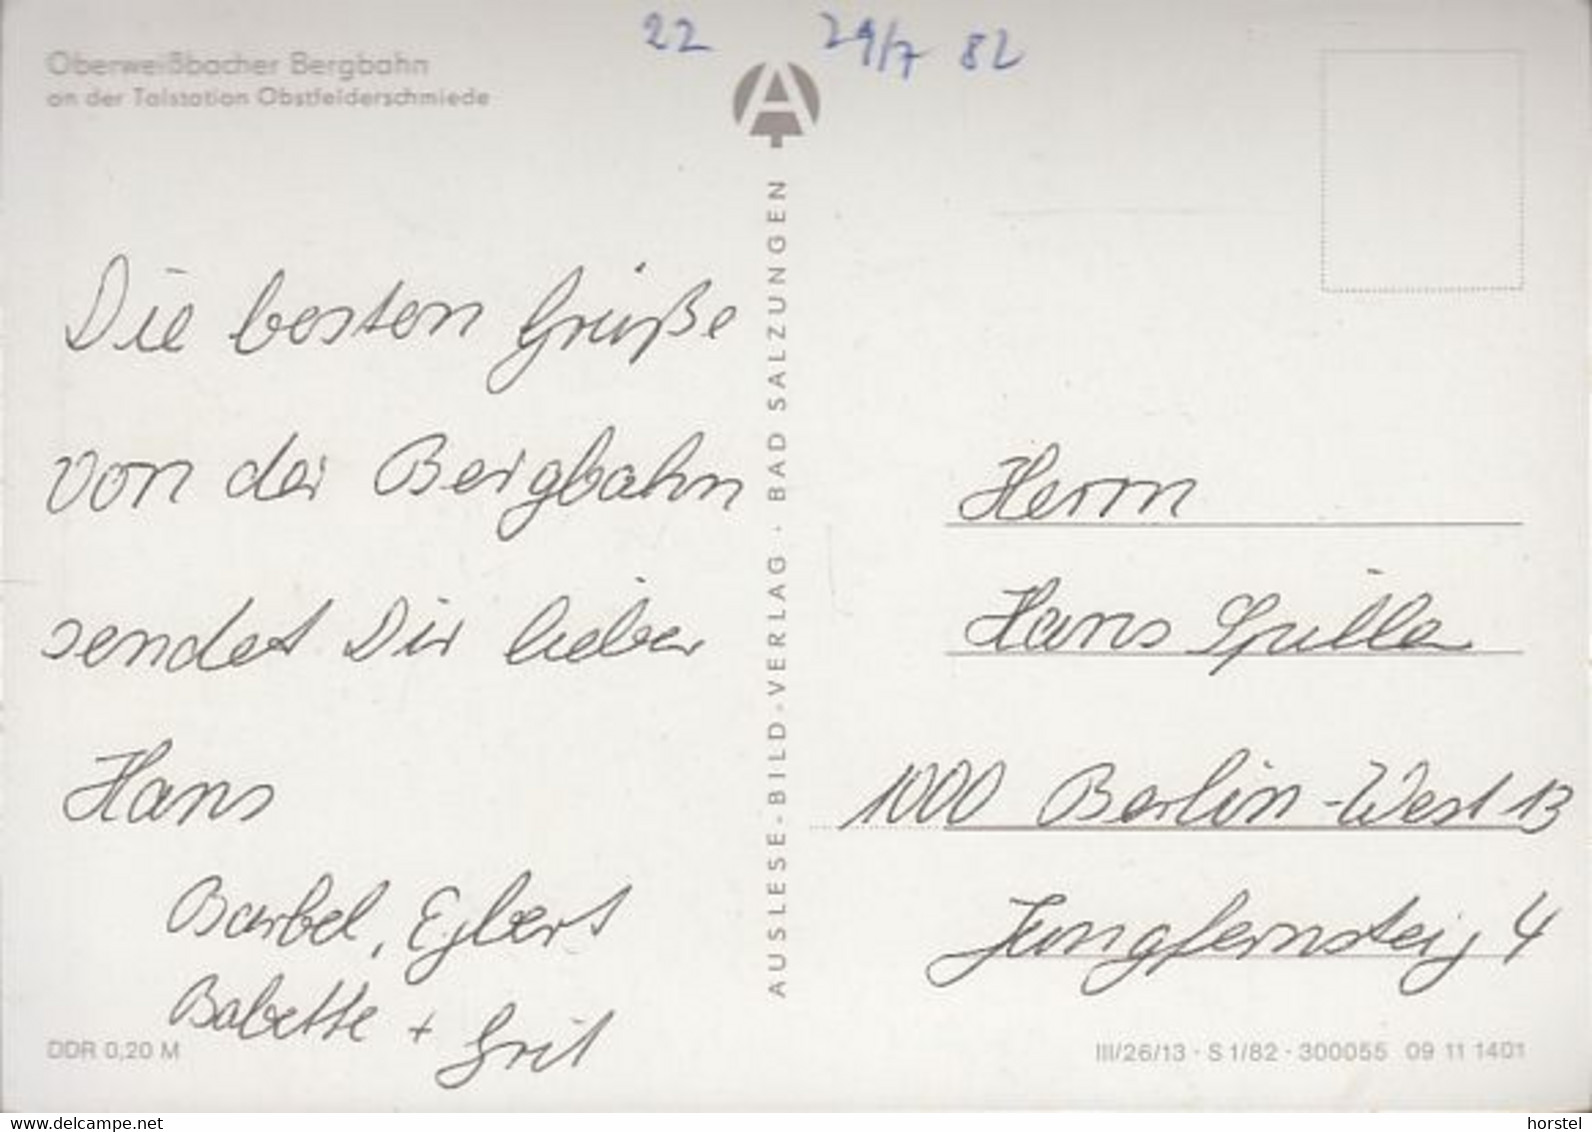 22 29/7 82
Oberweißbacher Bergbahn
an der Talstation Obstfelderschmiede
Die besten Grüße
von der Bergbahn
sendet Dir lieber
Hans
Barbel, Egbert
Babette + Grit
DDR 0,20 M
AUSLESE-BILD-VERLAG · BAD SALZUNGEN
Herrn
Hans Spilla
1000 Berlin-West 13
Jungfernsteig 4
III/26/13 · S 1/82 · 300055 09 11 1401
delcampe.net
horstel